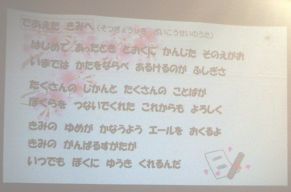 であえた きみへ(そつぎょうしき ざいこうせいのうた)
はじめて あったとき とおくに かんじた そのえがお
いまでは かたをならべ あるけるのが ふしぎさ
たくさんの じかんと たくさんの ことばが
ぼくらを つないでくれた これからも よろしく
きみの ゆめが かなうよう エールを おくるよ
きみの がんばるすがたが
いつでも ぼくに ゆうき くれるんだ